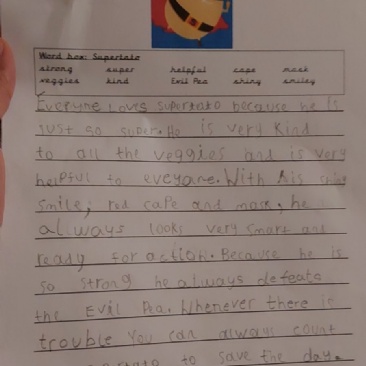 Word box: Supertato
strong super helpful cape mask
veggies kind Evil Pea shiny smiley
Everyne Loves supertato because he is
just so super. He is very kind
to all the veggies and is very
helpful to eveyone. With his shiny
smile, red cape and mask, he
always looks very smart and
ready for action. Because he is
so strong he always defeats
the Evil Pea. Whenever there is
trouble You can always count
to save the day.